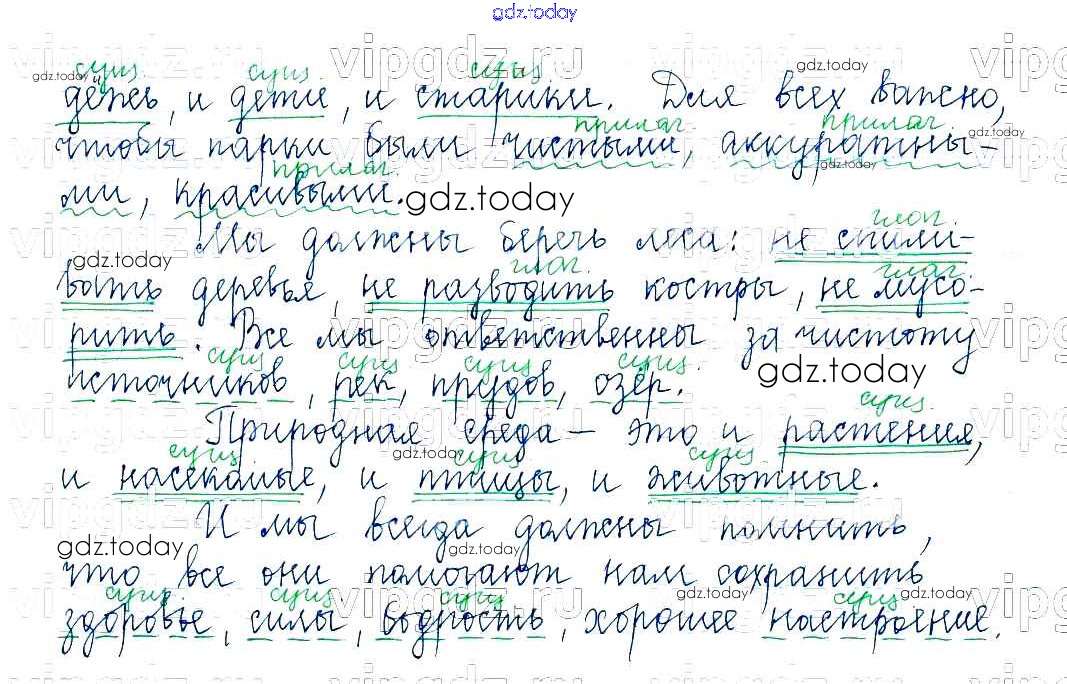 gdz.today
сущ. сущ. сущ.
дёжь, и дети, и старики. Для всех важно,
прилаг. прилаг.
чтобы парки были чистыми, аккуратны-
прилаг.
ми, красивыми. gdz.today
глаг.
Мы должны беречь леса: не спили-
глаг. глаг.
вать деревья, не разводить костры, не мусо-
рить. Все мы ответственны за чистоту
сущ. сущ. сущ. сущ.
источников, рек, прудов, озёр. gdz.today
сущ.
Природная среда – это и растения,
сущ. сущ. сущ.
и насекомые, и птицы, и животные.
И мы всегда должны помнить,
что все они помогают нам сохранить
сущ. сущ. сущ. сущ.
здоровье, силы, бодрость, хорошее настроение.